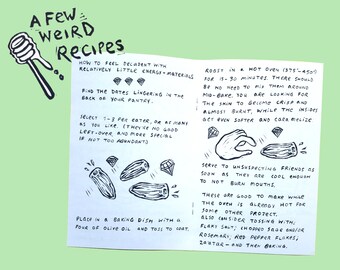 A FEW
WEIRD
RECIPES
HOW TO FEEL DECADENT WITH
RELATIVELY LITTLE ENERGY + MATERIALS
FIND THE DATES LINGERING IN THE
BACK OF YOUR PANTRY.
SELECT 1-3 PER EATER, OR AS MANY
AS YOU LIKE. (THEY'RE NO GOOD
LEFT-OVER, AND MORE SPECIAL
IF NOT TOO ABUNDANT)
PLACE IN A BAKING DISH WITH A
POUR OF OLIVE OIL AND TOSS TO COAT.
ROAST IN A HOT OVEN (375°-450°)
FOR 15-30 MINUTES. THERE SHOULD
BE NO NEED TO MIX THEM AROUND
MID-BAKE. YOU ARE LOOKING FOR
THE SKIN TO BECOME CRISP AND
ALMOST BURNT, WHILE THE INSIDES
GET EVEN SOFTER AND CARAMELIZE
SERVE TO UNSUSPECTING FRIENDS AS
SOON AS THEY ARE COOL ENOUGH
TO NOT BURN MOUTHS.
THESE ARE GOOD TO MAKE WHEN
THE OVEN IS ALREADY HOT FOR
SOME OTHER PROJECT.
ALSO CONSIDER TOSSING WITH:
FLAKY SALT, CHOPPED SAGE AND/OR
ROSEMARY, RED PEPPER FLAKES,
ZA'ATAR - AND THEN BAKING.